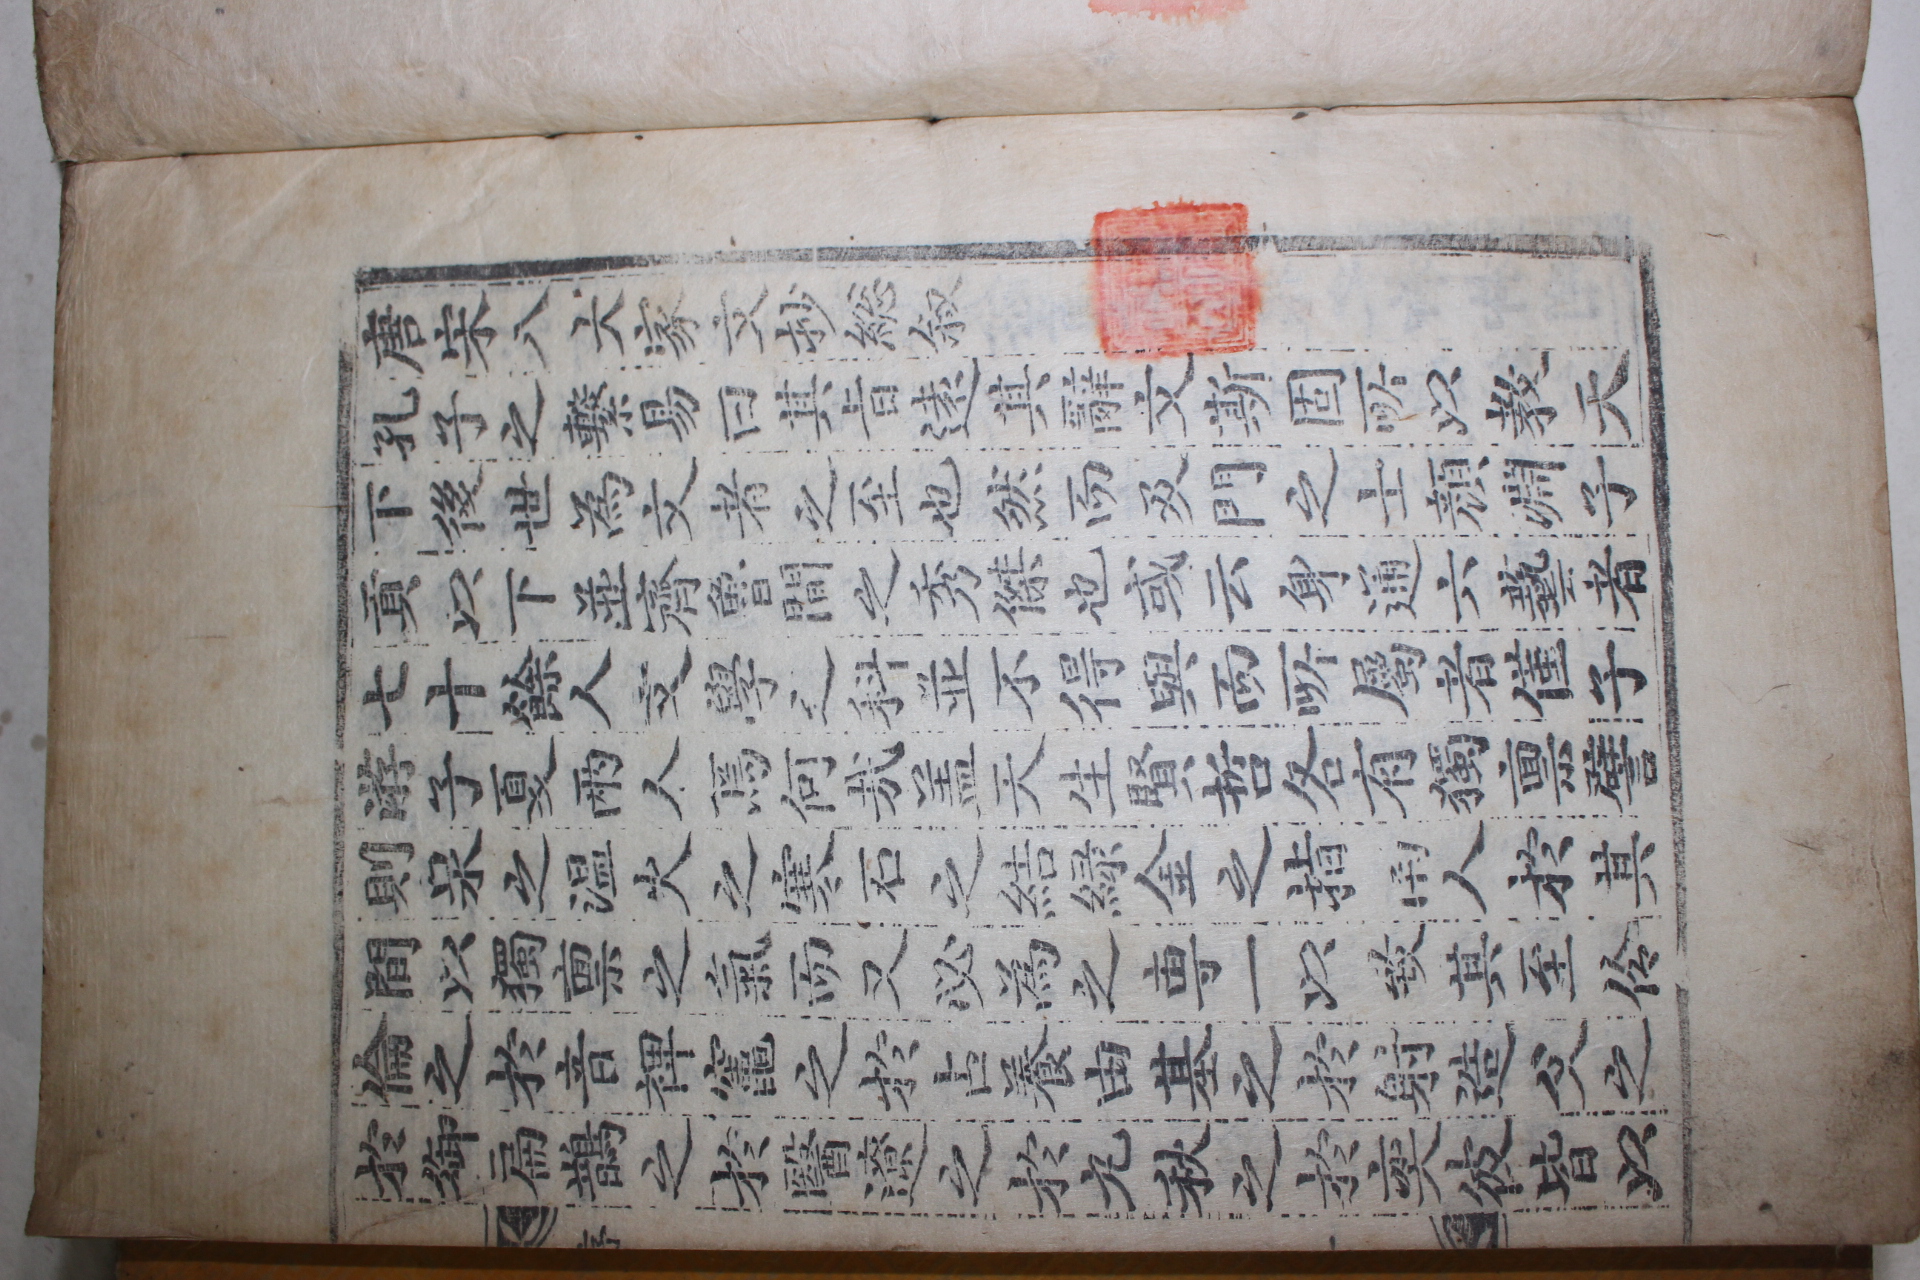 唐宋八大家文抄総敘
孔子之繫易曰其旨遠其辭文斯固所以教天
下後世為文者之至也然而及門之士顔淵子
貢以下並齊魯間之秀傑也或云身通六藝者
七十餘人文學之科並不得與而所屬者僅子
游子夏兩人焉何哉盖天生賢哲各有獨禀譬
則泉之温火之寒石之結緑金之指南人於其
間以獨禀之氣而又必為之専一以致其至伶
倫之於音裨竈之於占養由基之於射造父之
於御扁鵲之於醫遼之於丸秋之於奕彼皆以
序